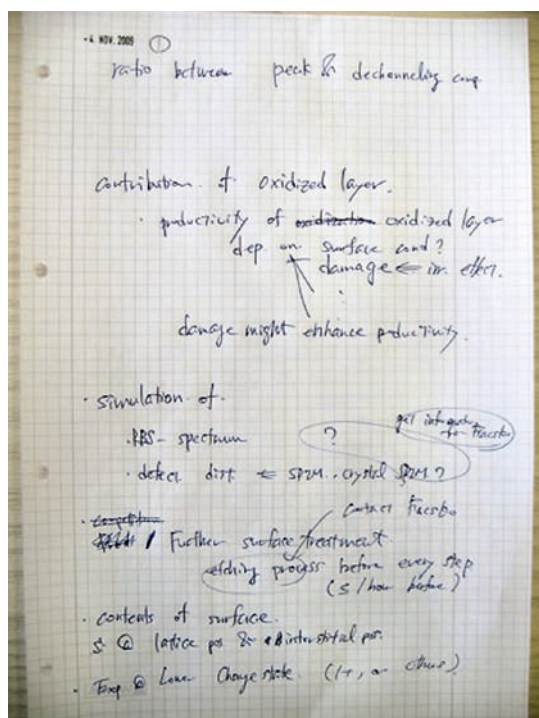 -4. NOV. 2009 ①
ratio between peak & dechanneling comp
contribution of oxidized layer.
· productivity of oxidization oxidized layer
dep on surface cond?
damage ⇐ irr. effect.
damage might enhance productivity.
· simulation of
· RBS- spectrum ?
get information from
· defect dist. ⇐ SRIM. crystal SRIM?
· competition
Contact
Further surface treatment
etching process before every step
(≤ 1 hour before)
· contents of surface.
S @ lattice pos & interstitial pos.
· Exp @ Lower Charge state. (1+, or others)